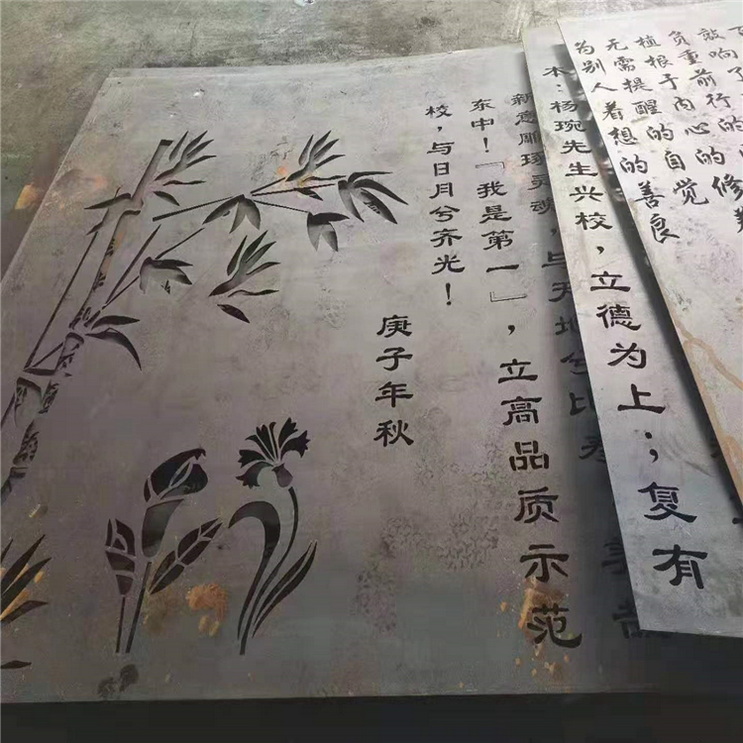 敲响了
负重前行的
植根于内心的修
无需提醒的自觉
为别人着想的善良
木：杨琬先生兴校，立德为上；复有
新意雕琢灵魂，与天地兮比寿
东中！「我是第一」，立高品质示范
校，与日月兮齐光！
庚子年秋